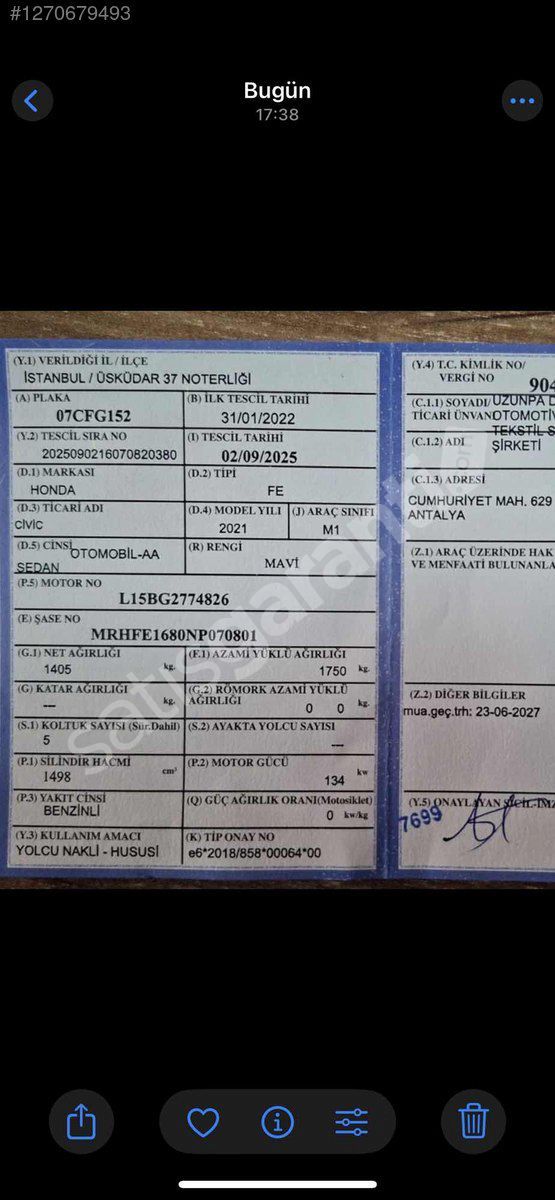 #1270679493
Bugün
17:38
(Y.1) VERİLDİĞİ İL / İLÇE
İSTANBUL / ÜSKÜDAR 37 NOTERLİĞİ
(A) PLAKA
07CFG152
(B) İLK TESCİL TARİHİ
31/01/2022
(Y.2) TESCİL SIRA NO
2025090216070820380
(I) TESCİL TARİHİ
02/09/2025
(D.1) MARKASI
HONDA
(D.2) TİPİ
FE
(D.3) TİCARİ ADI
CİVİC
(D.4) MODEL YILI
2021
(J) ARAÇ SINIFI
M1
(D.5) CİNSİ
OTOMOBİL-AA
SEDAN
(R) RENGİ
MAVİ
(P.5) MOTOR NO
L15BG2774826
(E) ŞASE NO
MRHFE1680NP070801
(G.1) NET AĞIRLIĞI
1405 kg.
(F.1) AZAMİ YÜKLÜ AĞIRLIĞI
1750 kg.
(G) KATAR AĞIRLIĞI
--- kg.
(G.2) RÖMORK AZAMİ YÜKLÜ
AĞIRLIĞI
0 0 kg.
(S.1) KOLTUK SAYISI (Sür.Dahil)
5
(S.2) AYAKTA YOLCU SAYISI
---
(P.1) SİLİNDİR HACMİ
1498 cm³
(P.2) MOTOR GÜCÜ
134 kw
(P.3) YAKIT CİNSİ
BENZİNLİ
(Q) GÜÇ AĞIRLIK ORANI(Motosiklet)
0 kw/kg
(Y.3) KULLANIM AMACI
YOLCU NAKLİ - HUSUSİ
(K) TİP ONAY NO
e6*2018/858*00064*00
(Y.4) T.C. KİMLİK NO/
VERGİ NO
904
(C.1.1) SOYADI/
TİCARİ ÜNVAN
UZUNPA D
OTOMOTİV
TEKSTİL S
ŞİRKETİ
(C.1.2) ADI
(C.1.3) ADRESİ
CUMHURİYET MAH. 629
ANTALYA
(Z.1) ARAÇ ÜZERİNDE HAK
VE MENFAATİ BULUNANLA
(Z.2) DİĞER BİLGİLER
mua.geç.trh: 23-06-2027
(Y.5) ONAYLAYAN SİCİL-İMZ
7699